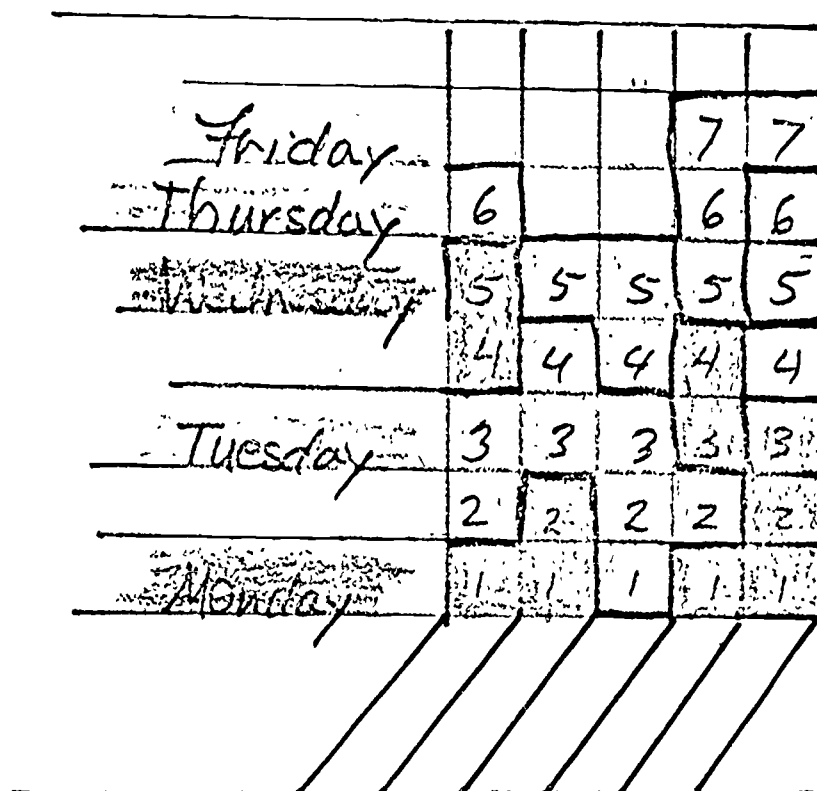 Friday 7 7
Thursday 6 6 6
Wednesday 5 5 5 5 5
4 4 4 4 4
Tuesday 3 3 3 3 3
2 2 2 2 2
Monday 1 1 1 1 1